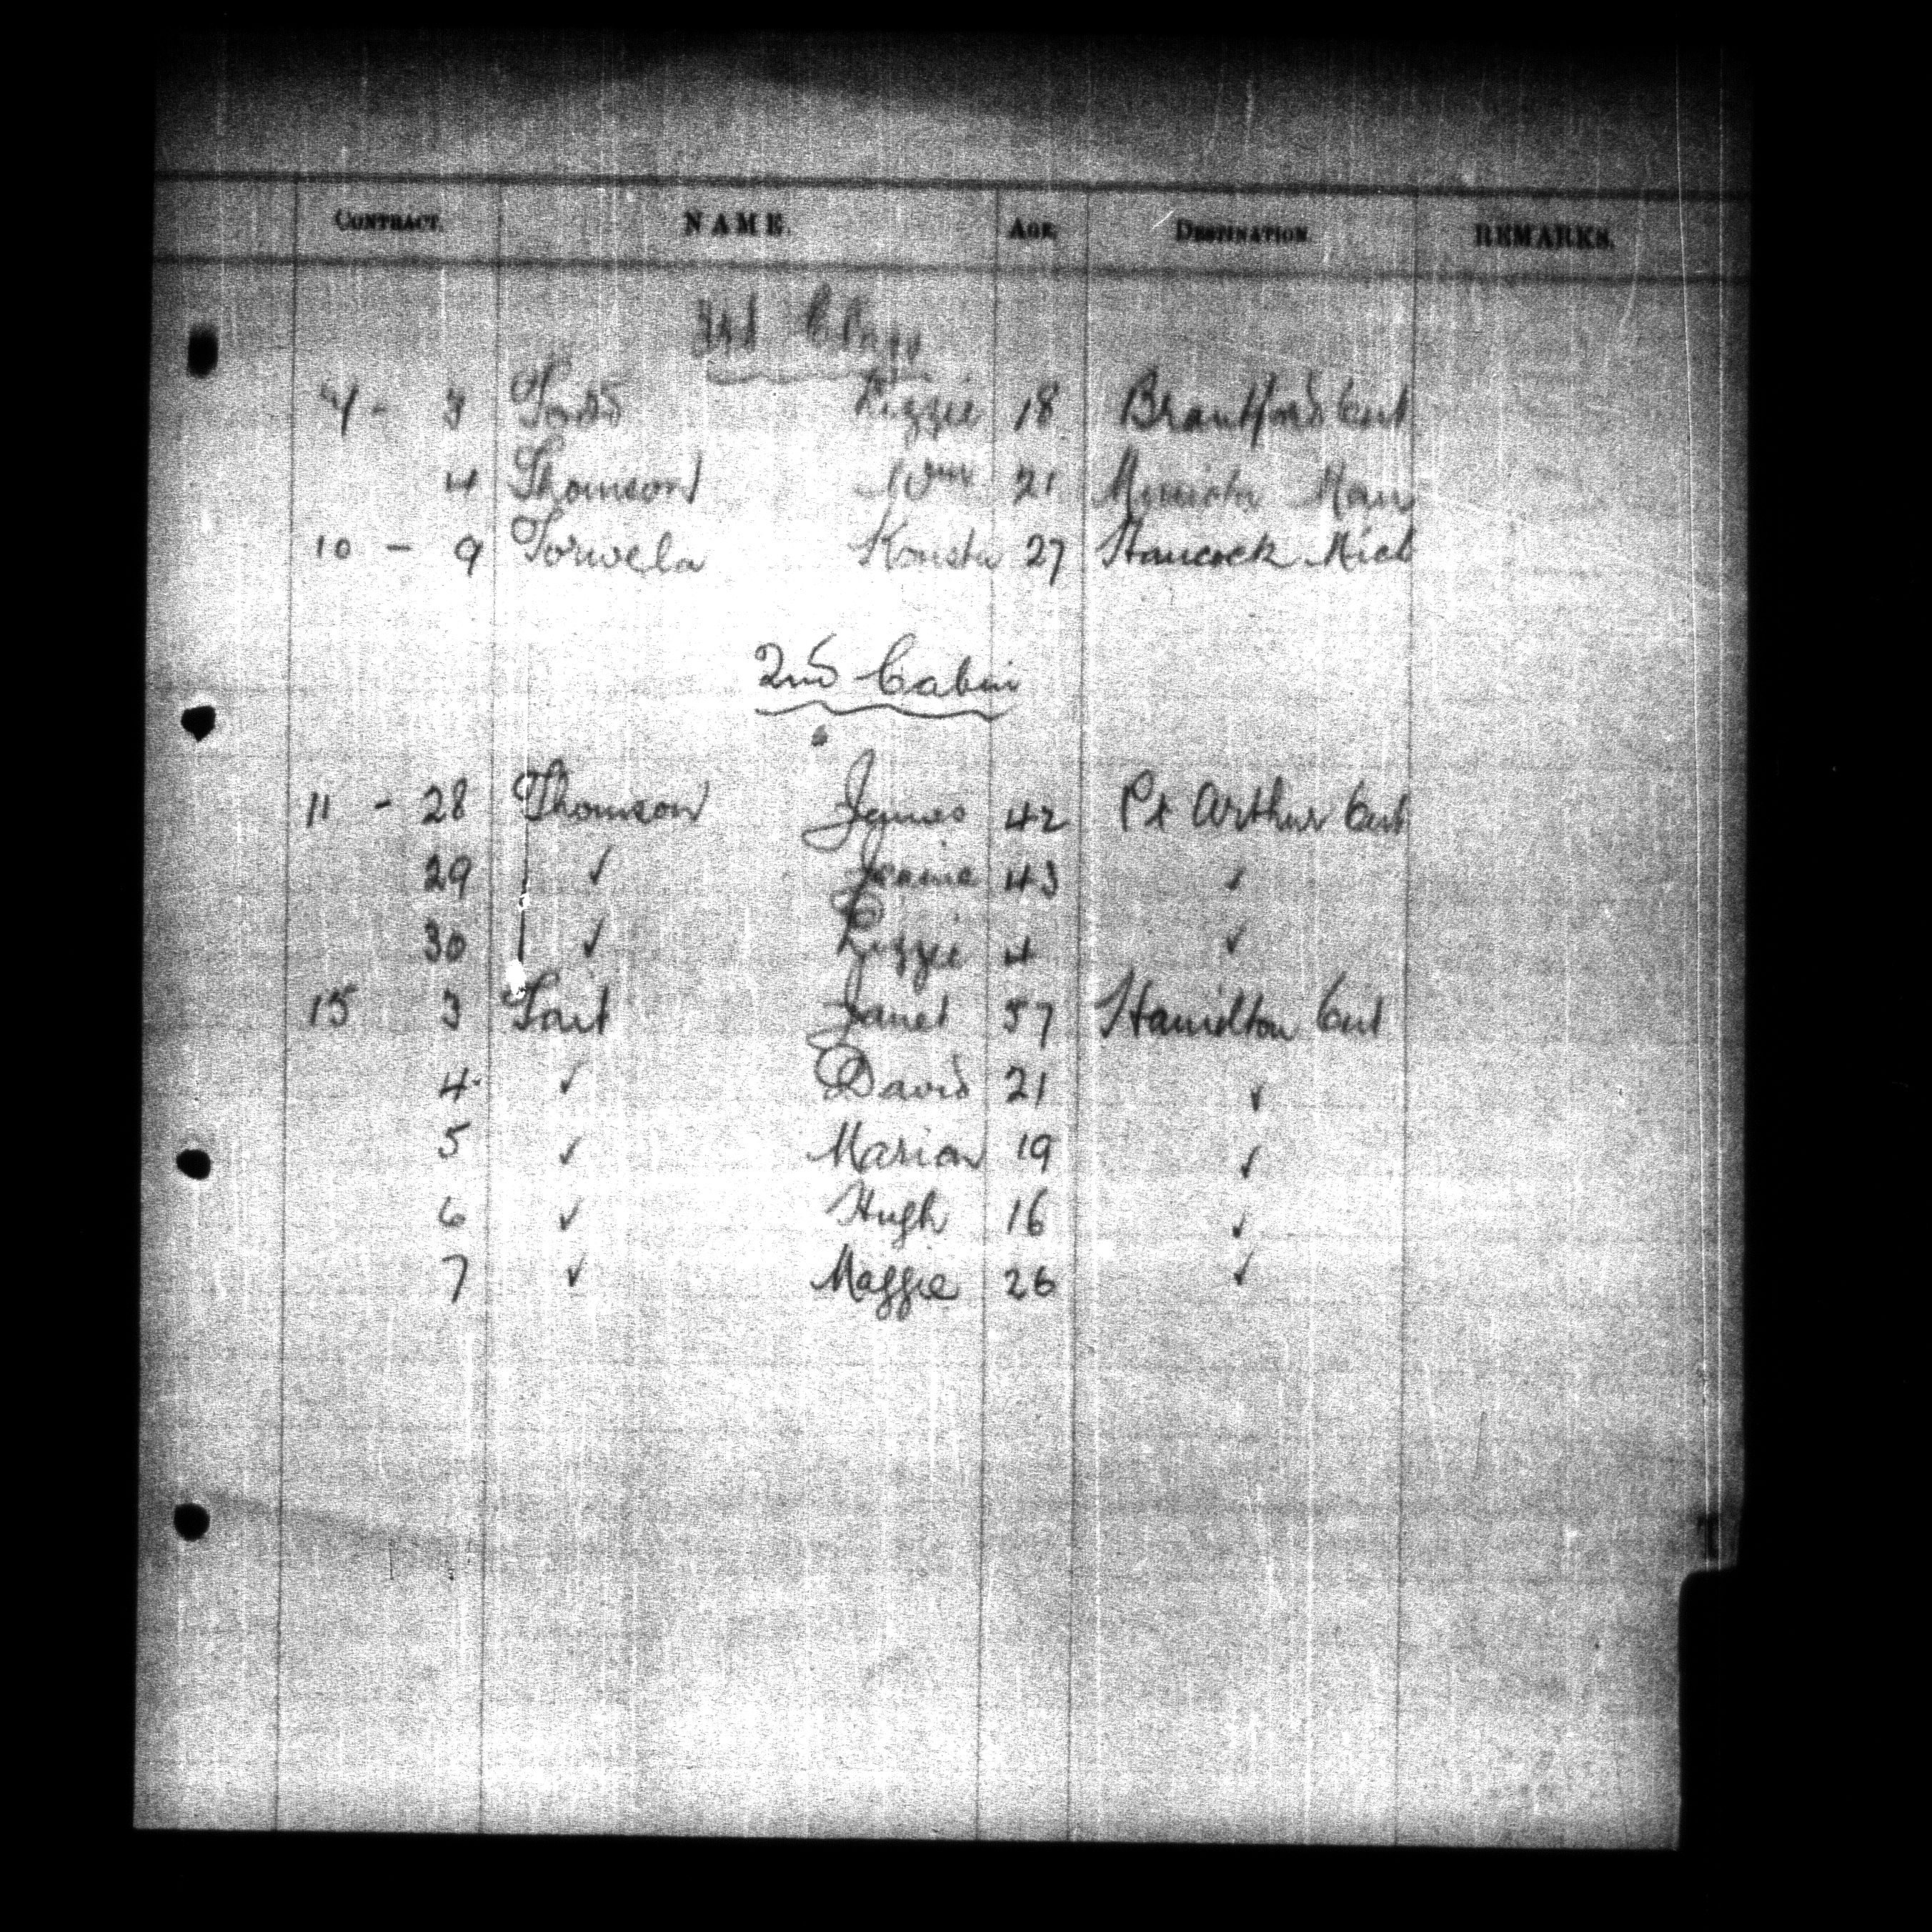 CONTRACT. NAME. AGE. DESTINATION. REMARKS.
3rd Class
4 - 3 Todd Lizzie 18 Brantford Ont
4 Thomson Wm 21 Miniota Man
10 - 9 Torvela 27 Hancock Mich
2nd Cabin
11 - 28 Thomson James 42 Pt Arthur Ont
29 ✓ Jeanie 43 ✓
30 ✓ Lizzie 4 ✓
15 3 Tait Janet 57 Hamilton Ont
4 ✓ David 21 ✓
5 ✓ Marion 19 ✓
6 ✓ Hugh 16 ✓
7 ✓ Maggie 26 ✓